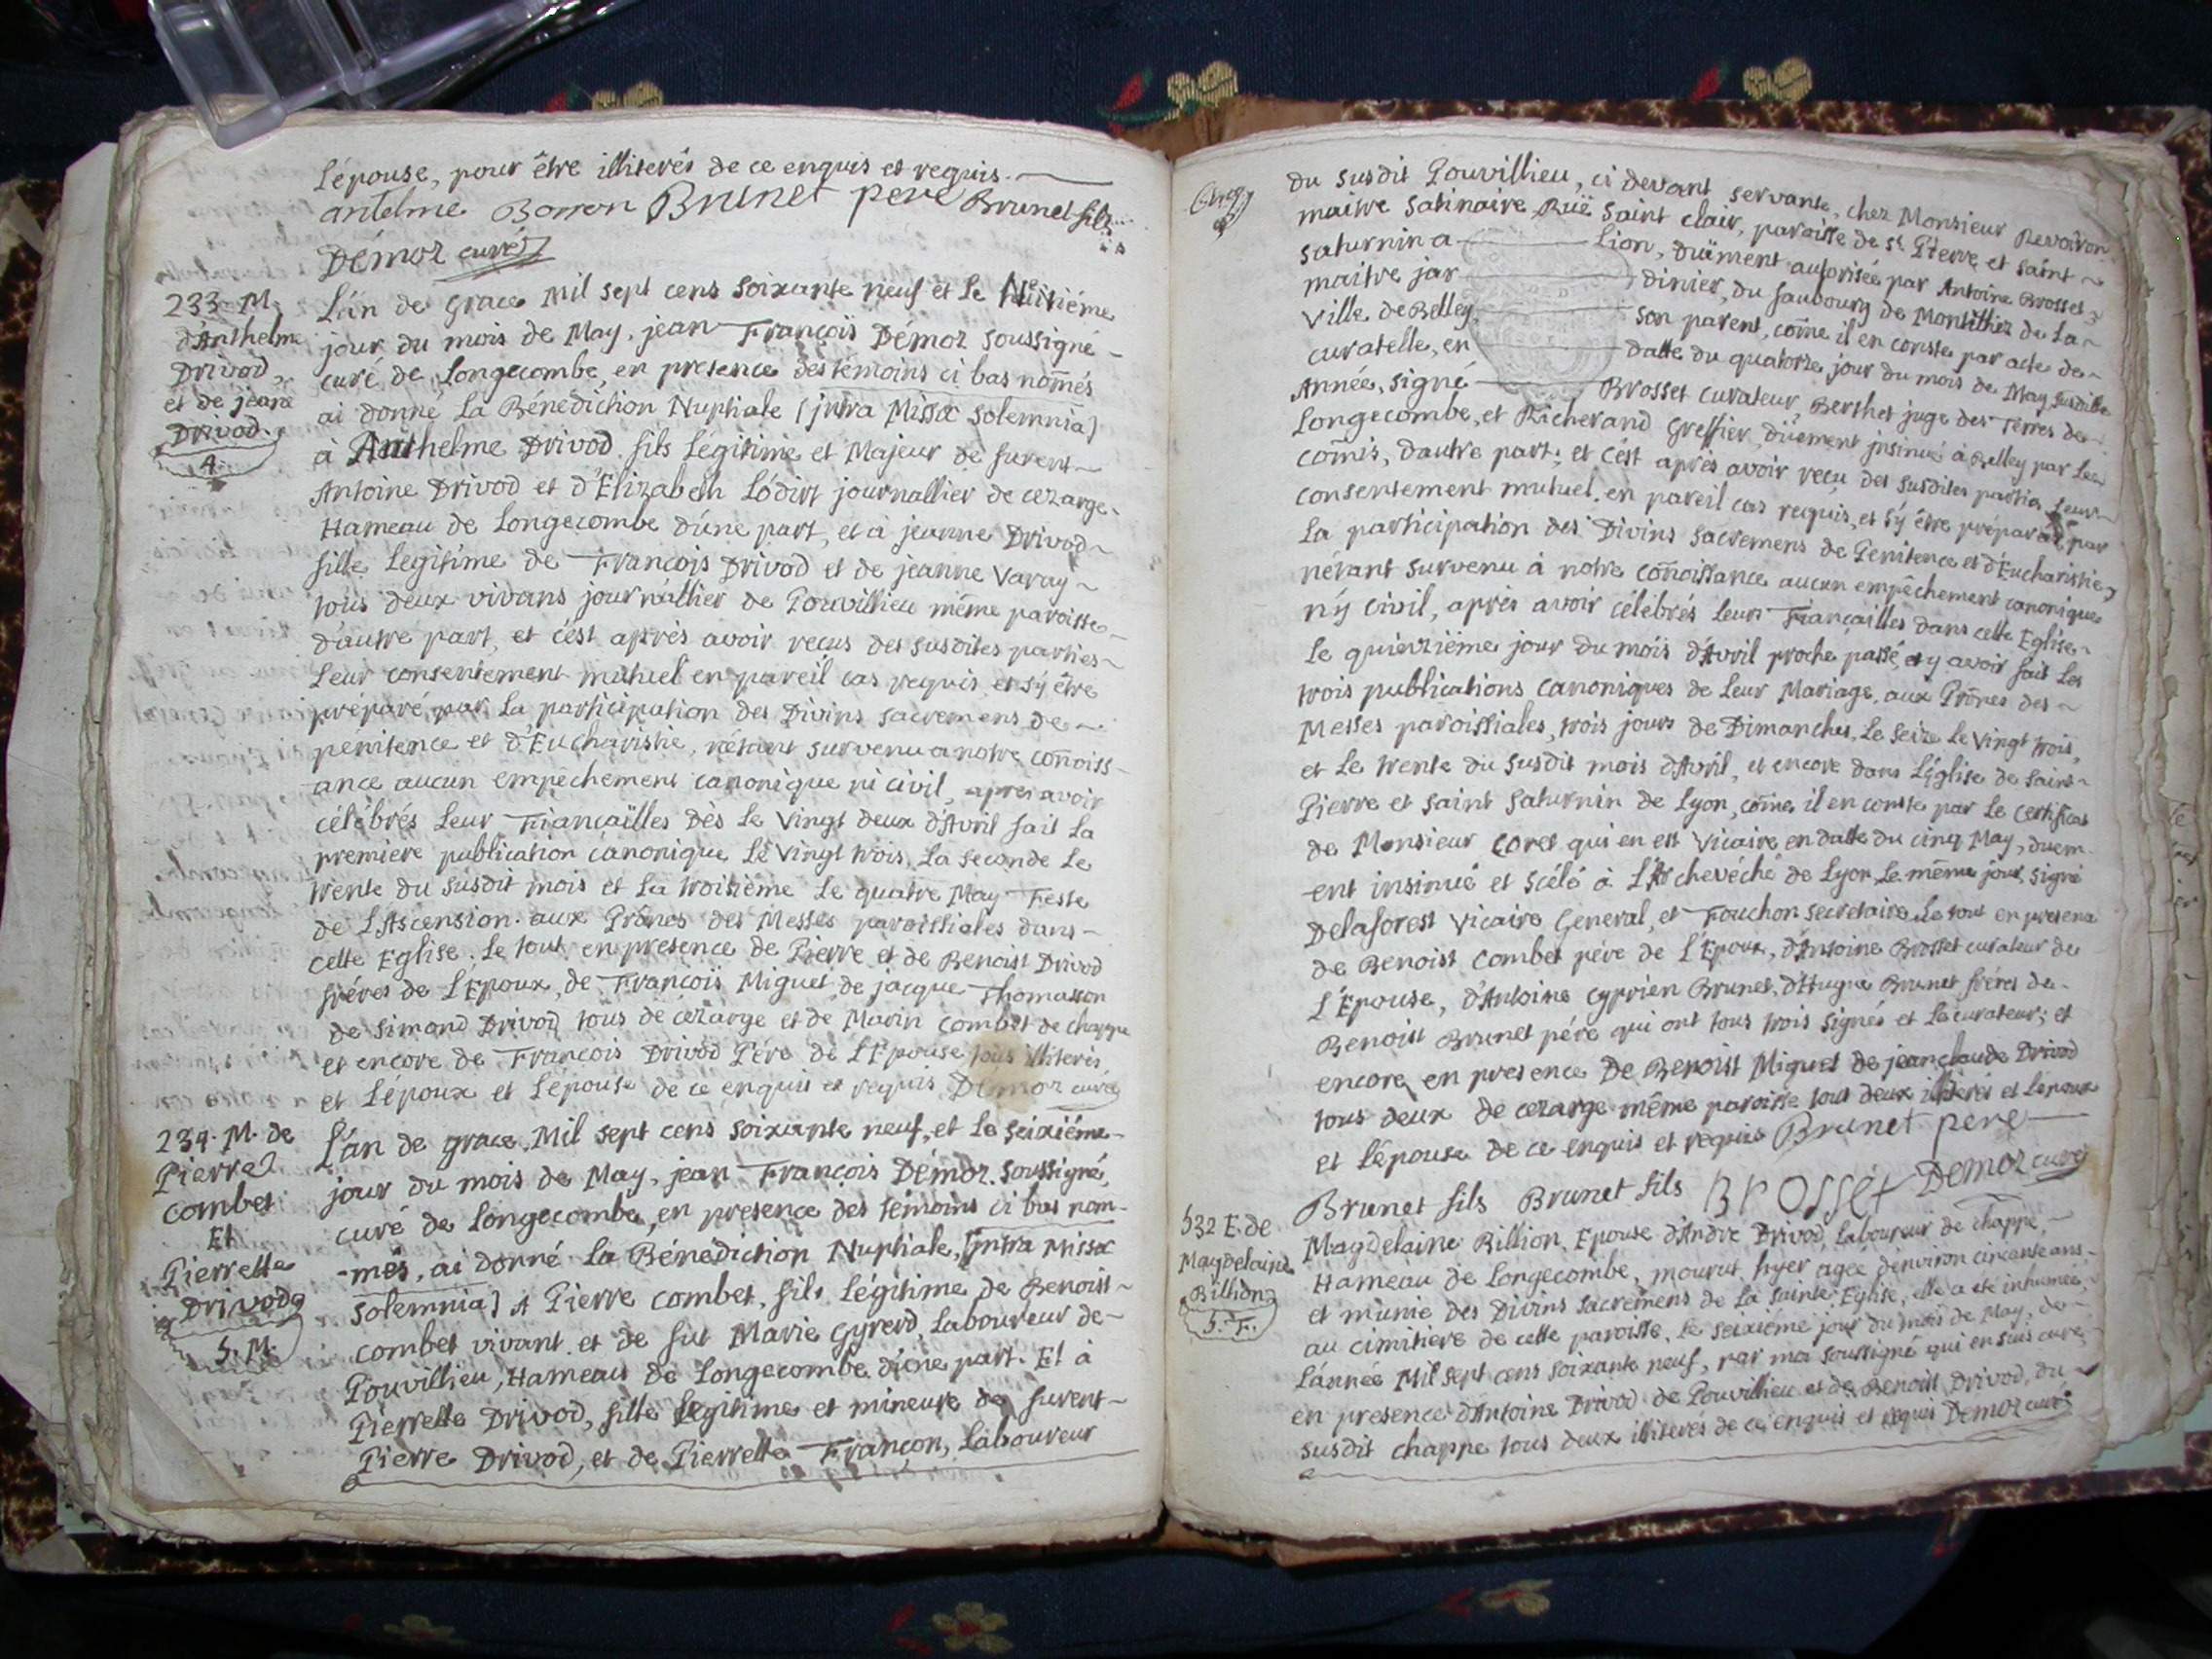 Lépouse, pour être illiterés de ce enquis et requis.
antelme Borron Brunet pere Brunet fils
Démoz curé
233. M.
d'Anthelme
Drivod,
et de jeane
Drivod.
4.
L'án de Grace Mil sept cens soixante neuf et Le Huitiéme
jour du mois de May, jean François Démoz soussigné
curé de Longecombe, en presence des témoins ci bas nom̃és
ai donné La Bénédiction Nuptiale (jntra Missæ solemnia)
à Anthelme Drivod fils Légitime et Majeur de furent
Antoine Drivod et d'Elizabeth Lódirt journallier de cezarge
Hameau de Longecombe dúne part, et à jeanne Drivod
fille Legitime de François Drivod et de jeanne Varay
tous deux vivans journallier de Pouvillieu même paroisse
d'autre part, et cést aprés avoir reçus des susdites parties
Leur consentement mutuel en pareil cas requis, et sý être
préparé par La participation des Divins sacremens de
penitence et d'Eucharistie, nétant survenu a notre con̄oiss
ance aucun empêchement canonique ni civil, apres avoir
célébrés Leur Fiançaïlles dès Le Vingt deux d'Avril fait La
premiere publication canonique Le Vingt trois, La seconde Le
trente du susdit mois et La troisiéme Le quatre May Feste
de L'Ascension aux Prônes des Messes paroissiales dans
cette Eglise. Le tout en presence de Pierre et de Benoist Drivod
fréres de L'Epoux, de François Miguet, de jacque Thomasson
de Simond Drivod tous de cezarge et de Marin Combet de chappe
et encore de François Drivod Pére de L'Epouse tous illiterés
et Lépoux et Lépouse de ce enquis et requis Démoz curé
234. M. de
Pierre
Combet
Et
Pierrette
Drivod
5. M.
L'án de grace Mil sept cens soixante neuf, et Le seiziéme
jour du mois de May, jean François Démoz. soussigné,
curé de Longecombe, en presence des témoins ci bas nom
-més, ai donné La Bénédiction Nuptiale, (jntra Missæ
solemnia) A Pierre Combet, fils Légitime de Benoist
Combet vivant et de fut Marie Gyrerd, Laboureur de
Pouvillieu, Hameau de Longecombe dúne part. Et à
Pierrette Drivod, fille Legitime et mineure de furent
Pierre Drivod, et de Pierrette Françon, Laboureur
du susdit Pouvillieu, ci devant servante, chez Monsieur Revoiron
maitre satinaire Ruë Saint clair, paroisse de St. Pierre et saint
saturnin a Lion, düement autorisée par Antoine Brosset
maitre jar dinier, du faubourg de Montillier de La
Ville de Belley, son parent, com̃e il en conste par acte de
curatelle, en datte du quatorze jour du mois de May susditte
Année, signé Brosset Curateur, Berthet juge des Terres de
Longecombe, et Richerand Greffier, düement jnsinué à Belley par Les
com̃is, dautre part, et cést aprés avoir reçu des susdites parties Leur
consentement mutuel en pareil cas requis, et sý être préparés par
La participation des Divins sacremens de Penitence et d'Eucharistie,
nétant survenu à notre con̄oissance aucun empêchement canonique
ný civil, aprés avoir célébrés Leurs Fiançailles dans cette Eglise
Le quienziéme jour du mois d'Avril proche passé, et y avoir fait Les
trois publications canoniques de Leur Mariage aux Prônes des
Messes paroissiales, trois jours de Dimanches, Le seize Le vingt trois,
et Le trente du susdit mois d'Avril, et encore dans L'église de saint
Pierre et saint Saturnin de Lyon, com̃e il en conste par Le certificat
de Monsieur Coret qui en est Vicaire en datte du cinq May, duem
ent insinué et scélé à L'Archevéché de Lyon Le même jour, signé
Delaforest Vicaire General, et Fouchon secretaire, Le tout en presence
de Benoist Combet pére de L'Epoux, d'Antoine Brosset curateur de
L'Epouse, d'Antoine Cyprien Brunet, d'Hugue Brunet fréres de
Benoist Brunet pére qui ont tous trois signés et Le curateur; et
encore en presence De Benoist Miguet de jeanclaude Drivod
tous deux de cezarge même paroisse tout deux illiterés et Lépoux
et Lépouse de ce enquis et requis Brunet pere
Brunet fils Brunet fils Brosset Démoz curé
532 E. de
Magdelaine
Billion
5. F.
Magdelaine Billion, Epouse d'André Drivod, Laboureur de chappe,
Hameau de Longecombe, mourut hyer agée dénviron cincante ans
et munie des Divins sacremens de La sainte Eglise, elle a eté inhumée
au cimitiere de cette paroisse, Le seiziéme jour du mois de May, de
Lánnée Mil sept cens soixante neuf, par moi soussigné qui en suis curé
en presence d'Antoine Drivod de Pouvillieu et de Benoist Drivod, du
susdit chappe tous deux illiterés de ce enquis et requis Démoz curé